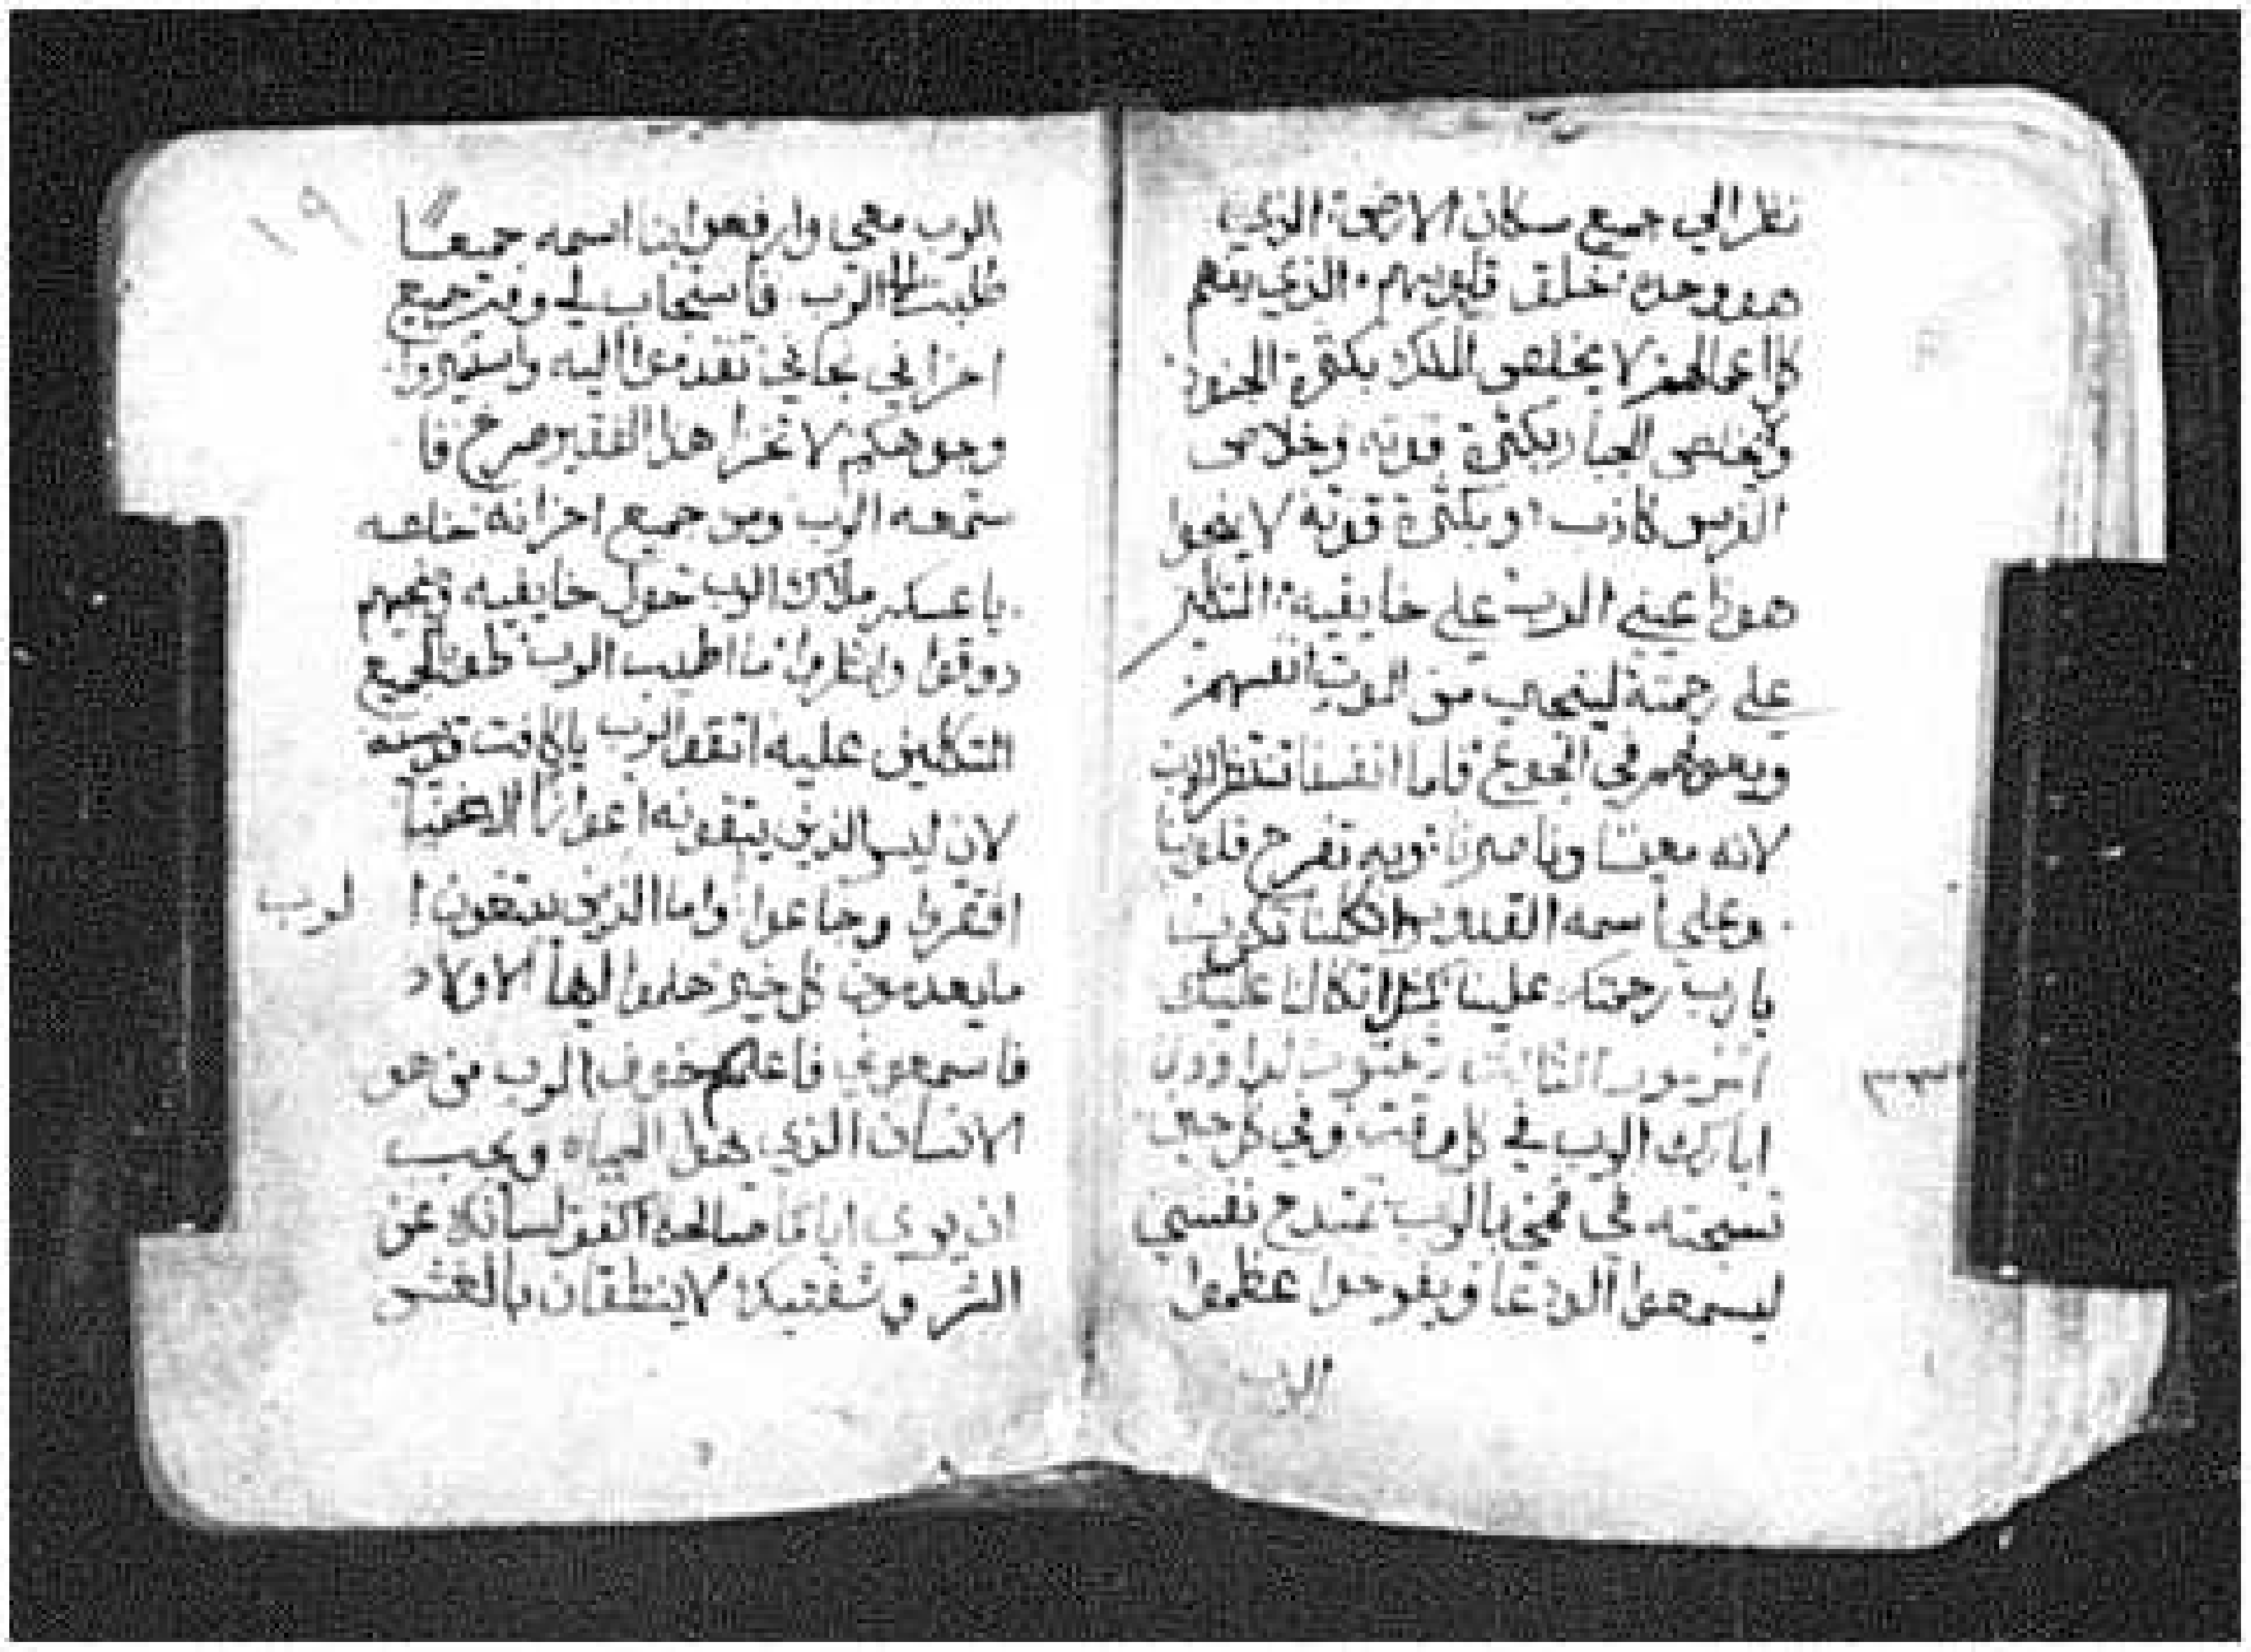 نظر الي جميع سكان الارض الذي
هو وحده خلق قلوبهم الذي يفهم
كل اعمالهم لا يخلص الملك بكثرة الجنود
ولا يخلص الجبار بكثرة قوته وخلاص
الفرس كاذب وبكثرة قوته لا ينجوا
هوذا عيني الرب علي خايفيه المتكلين
علي رحمته لينجي من الموت انفسهم
ويعولهم في الجوع فاما انفسنا تنتظر الرب
لانه معيننا وناصرنا وبه تفرح قلوبنا
وعلي اسمه القدوس اتكلنا تكون
يا رب رحمتك علينا كمثل اتكالنا عليك
المزمور الثالث لداوود
٣٣
ابارك الرب في كل وقت وفي كل حين
تسبحته في فمي بالرب تمتدح نفسي
ليسمعوا الودعا ويفرحوا عظموا
الرب
١٩
الرب معي وارفعوا بنا اسمه جميعًا
طلبت الرب فاستجاب لي ومن جميع
احزاني نجاني تقدموا اليه واستنيروا
وجوهكم لا تخزا هذا الفقير صرخ فا
ستمعه الرب ومن جميع احزانه خلصه
يا عسكر ملاك الرب حول خايفيه وينجيهم
دوقوا وانظروا ما اطيب الرب طوبا لجميع
المتكلين عليه اتقوا الرب يا كافت قديسيه
لان ليس الذين يتقونه اعوازا الاغنيا
افتقروا وجاعوا واما الذين يبتغون ا لرب
ما يعدمون كل خير هلموا ايها الاولاد
فاسمعوني فاعلمكم خوف الرب من هو
الانسان الذي يهوا الحياه ويحب
ان يري اياما صالحة اكفف لسانك عن
الشر وشفتيك لا ينطقان بالغش